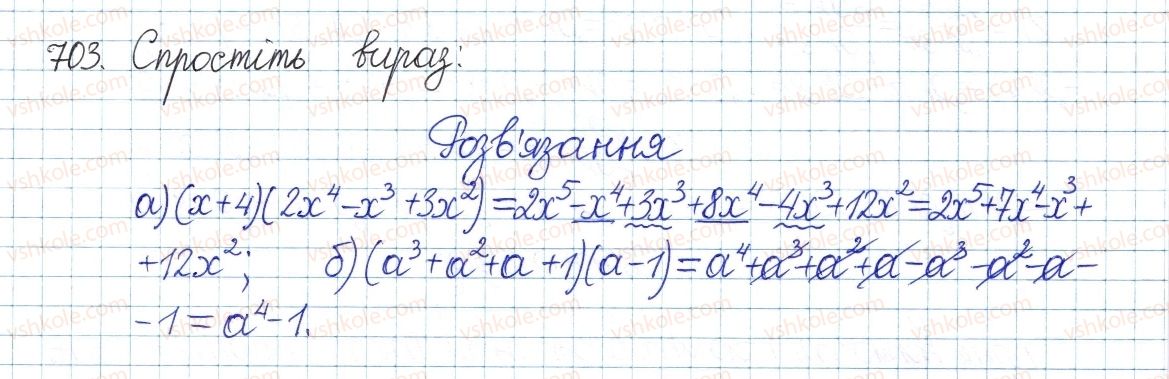 703. Спростіть вираз:
Розв'язання
а) (x+4)(2x⁴-x³+3x²)=2x⁵-x⁴+3x³+8x⁴-4x³+12x²=2x⁵+7x⁴-x³+
+12x²; б) (a³+a²+a+1)(a-1)=a⁴+a³+a²+a-a³-a²-a-
-1=a⁴-1.